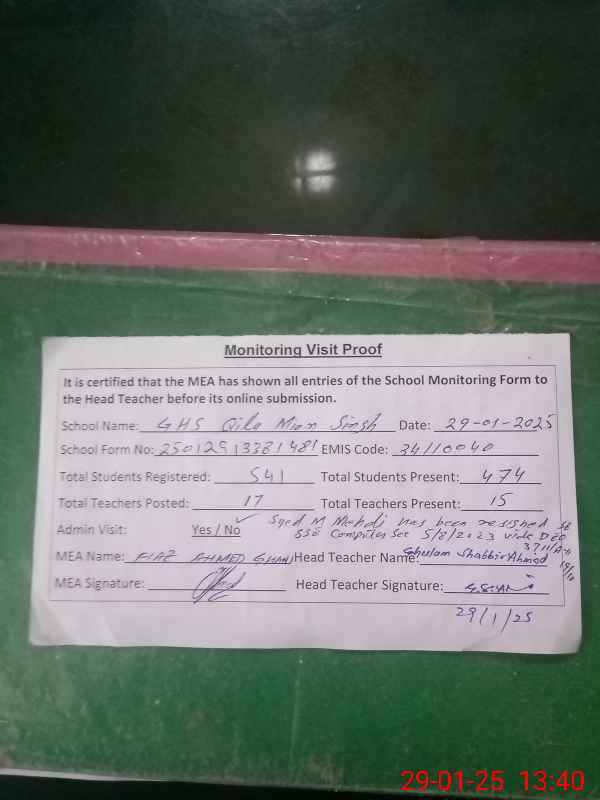 Monitoring Visit Proof
It is certified that the MEA has shown all entries of the School Monitoring Form to
the Head Teacher before its online submission.
School Name: GHS Qila Mian Singh Date: 29-01-2025
School Form No: 25012913381481 EMIS Code: 34110040
Total Students Registered: 541 Total Students Present: 474
Total Teachers Posted: 17 Total Teachers Present: 15
Admin Visit: Yes / No Syed M Mehdi has been resigned
SSE Computer Sci 5/8/2023 vide DEO
MEA Name: FIAZ AHMED GHANI Head Teacher Name: Ghulam Shabbir Ahmad
MEA Signature: Head Teacher Signature:
29/1/25
29-01-25 13:40